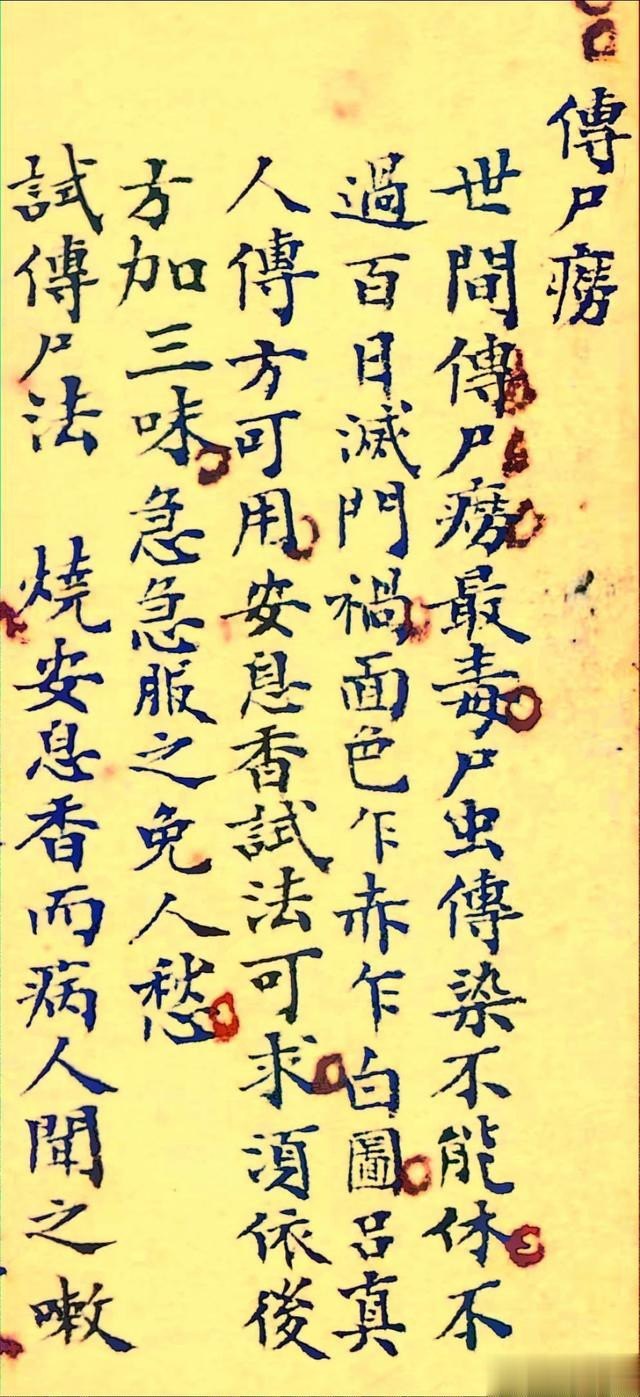 傳尸癆
世間傳尸癆最毒尸虫傳染不能休不
過百日滅門禍面色乍赤乍白圖呂真
人傳方可用安息香試法可求須依後
方加三味急急服之免人愁
試傳尸法 燒安息香而病人聞之嗽